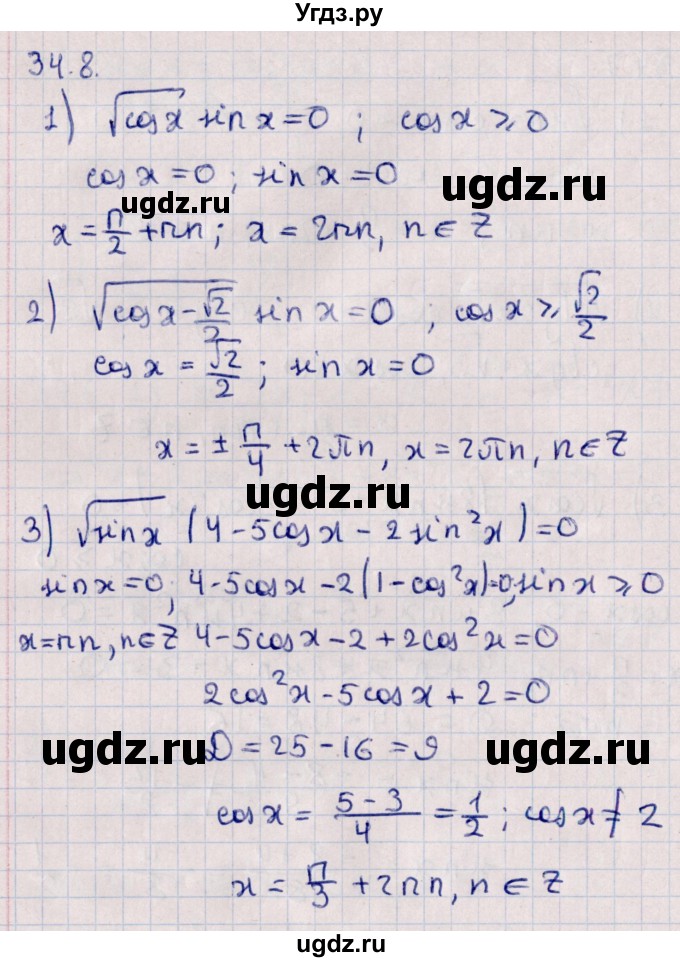 Угдз.ру
34.8.
1) √cosx sin x = 0 ; cosx ⩾ 0
cosx = 0 ; sin x = 0
ugdz.ru
ugdz.ru
x = π/2 + πn ; x = 2πn, n ∈ Z
2) √(cosx − √2/2) sin x = 0 ; cosx ⩾ √2/2
cosx = √2/2 ; sin x = 0
x = ± π/4 + 2πn, x = 2πn, n ∈ Z
ugdz.ru
3) √sinx (4 − 5cosx − 2sin²x) = 0
sinx = 0; 4 − 5cosx − 2(1 − cos²x) = 0; sinx ⩾ 0
x = πn, n ∈ Z 4 − 5cosx − 2 + 2cos²x = 0
2cos²x − 5cosx + 2 = 0
ugdz.ru
D = 25 − 16 = 9
ugdz.ru
cosx = (5 − 3)/4 = 1/2 ; cosx ≠ 2
x = π/3 + 2πn, n ∈ Z
ugdz.ru